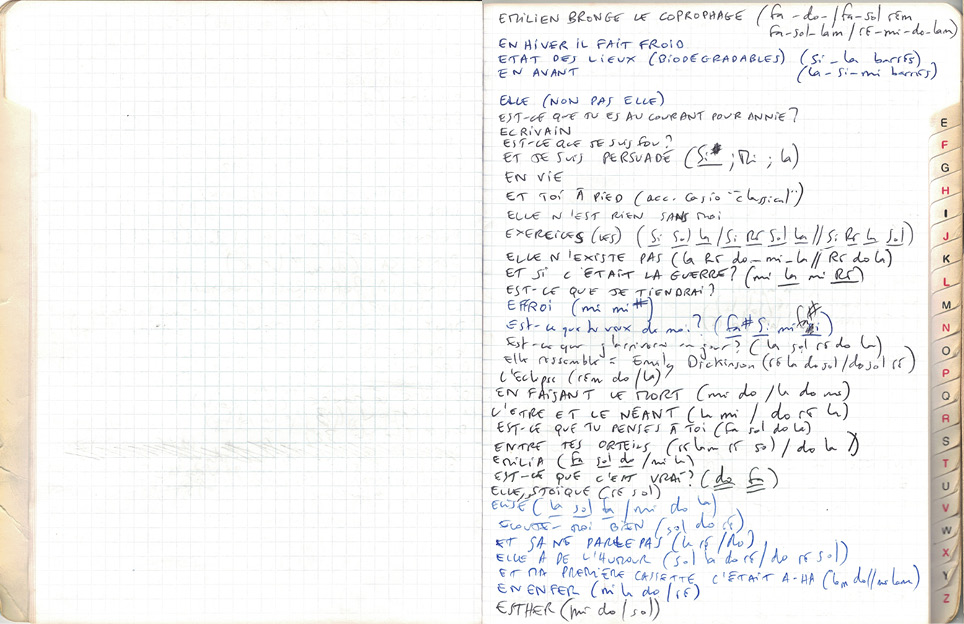 EMILIEN BRONGE LE COPROPHAGE (fa - do - / fa - sol rém
fa - sol - lam / ré - mi - do - lam)
EN HIVER IL FAIT FROID
ETAT DES LIEUX (BIODÉGRADABLES) (si - la barrés)
EN AVANT (la - si - mi barrés)
ELLE (NON PAS ELLE)
EST-CE QUE TU ES AU COURANT POUR ANNIE ?
ECRIVAIN
EST-CE QUE JE SUIS FOU ?
ET JE SUIS PERSUADÉ (Si# ; Mi ; la)
EN VIE
ET TOI À PIED (acc. Casio "classical")
ELLE N'EST RIEN SANS MOI
EXERCICES (LES) (Si Sol la / Si Ré Sol la // Si Ré la Sol)
ELLE N'EXISTE PAS (la Ré do - mi - la // Ré do la)
ET SI C'ÉTAIT LA GUERRE ? (mi la mi Ré)
EST-CE QUE JE TIENDRAI ?
EFFROI (mi mi#)
Est-ce que tu veux de moi ? (fa# Si mi fa#)
Est-ce que j'arriverai un jour ? (la sol ré do la)
Elle ressemble à Emily Dickinson (ré la do sol / do sol ré)
L'Eclipse (rém do / la)
EN FAISANT LE MORT (mi do / la do mi)
L'ETRE ET LE NÉANT (la mi / do ré la)
EST-CE QUE TU PENSES À TOI (fa sol do la)
ENTRE TES ORTEILS (ré lam ré sol / do la)
EMILIA (fa sol do / mi la)
EST-CE QUE C'EST VRAI ? (do fa)
ELLE, STOÏQUE (ré sol)
ELISE (la sol fa / mi do la)
ECOUTE-MOI BIEN (sol do ré)
ET ÇA NE PARLE PAS (la ré / do)
ELLE A DE L'HUMOUR (sol la do ré / do ré sol)
ET MA PREMIÈRE CASSETTE C'ÉTAIT A-HA
EN ENFER (mi la do / ré)
ESTHER (mi do / sol)
E
F
G
H
I
J
K
L
M
N
O
P
Q
R
S
T
U
V
W
X
Y
Z